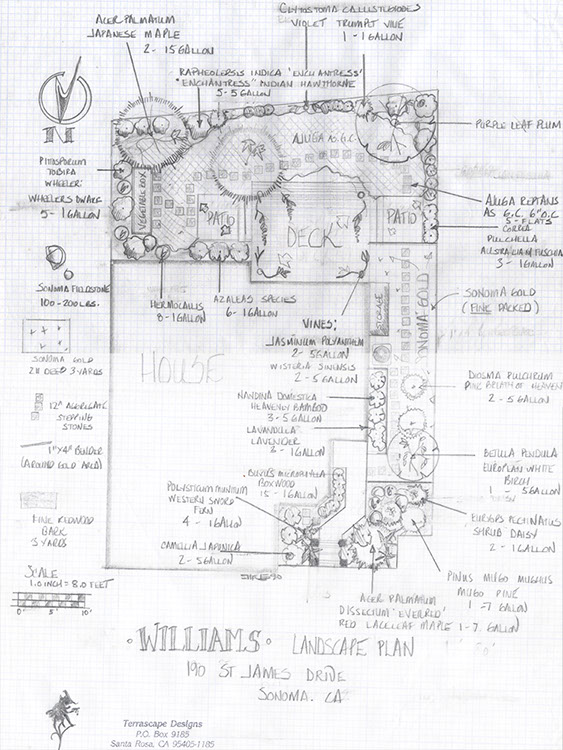 CLYTOSTOMA CALLISTEGIOIDES
VIOLET TRUMPET VINE
1 - 1 GALLON
ACER PALMATUM
JAPANESE MAPLE
2 - 15 GALLON
RAPHEOLEPSIS INDICA 'ENCHANTRESS'
"ENCHANTRESS" INDIAN HAWTHORNE
5 - 5 GALLON
N
AJUGA AS G.C.
PURPLE LEAF PLUM
PITTOSPORUM
TOBIRA
WHEELERI
WHEELERS DWARF
5 - 1 GALLON
VEGETABLE BOX
PATIO
DECK
PATIO
AJUGA REPTANS
AS G.C. 6" O.C.
5 - FLATS
CORREA
PULCHELLA
AUSTRALIAN FUSCHIA
3 - 1 GALLON
SONOMA FIELDSTONE
100-200 LBS.
HEMOCALLIS
8 - 1 GALLON
AZALEAS SPECIES
6 - 1 GALLON
STORAGE
SONOMA GOLD
SONOMA GOLD
(FINE PACKED)
VINES:
JASMINUM POLYANTHUM
2 - 5 GALLON
WISTERIA SINENSIS
2 - 5 GALLON
SONOMA GOLD
2" DEEP 3 YARDS
HOUSE
DIOSMA PULCHRUM
PINK BREATH OF HEAVEN
2 - 5 GALLON
NANDINA DOMESTICA
HEAVENLY BAMBOO
3 - 5 GALLON
LAVANDULA
LAVENDER
2 - 1 GALLON
12" AGGREGATE
STEPPING
STONES
1"X4" BENDER
(AROUND GOLD AREA)
BETULA PENDULA
EUROPEAN WHITE
BIRCH
1 - 5 GALLON
BUXUS MICROPHYLLA
BOXWOOD
15 - 1 GALLON
POLYSTICUM MUNITUM
WESTERN SWORD
FERN
4 - 1 GALLON
FINE REDWOOD
BARK
3 YARDS
EURYOPS PECTINATUS
SHRUB DAISY
2 - 1 GALLON
CAMELLIA JAPONICA
2 - 5 GALLON
PINUS MUGO MUGHUS
MUGO PINE
1 - 7 GALLON
SCALE
1.0 INCH = 8.0 FEET
0 5' 10'
ACER PALMATUM
DISSECTUM 'EVERRED'
RED LACELEAF MAPLE 1 - 7 GALLON
WILLIAMS LANDSCAPE PLAN
190 ST JAMES DRIVE
SONOMA. CA
Terrascape Designs
P.O. Box 9185
Santa Rosa, CA 95405-1185